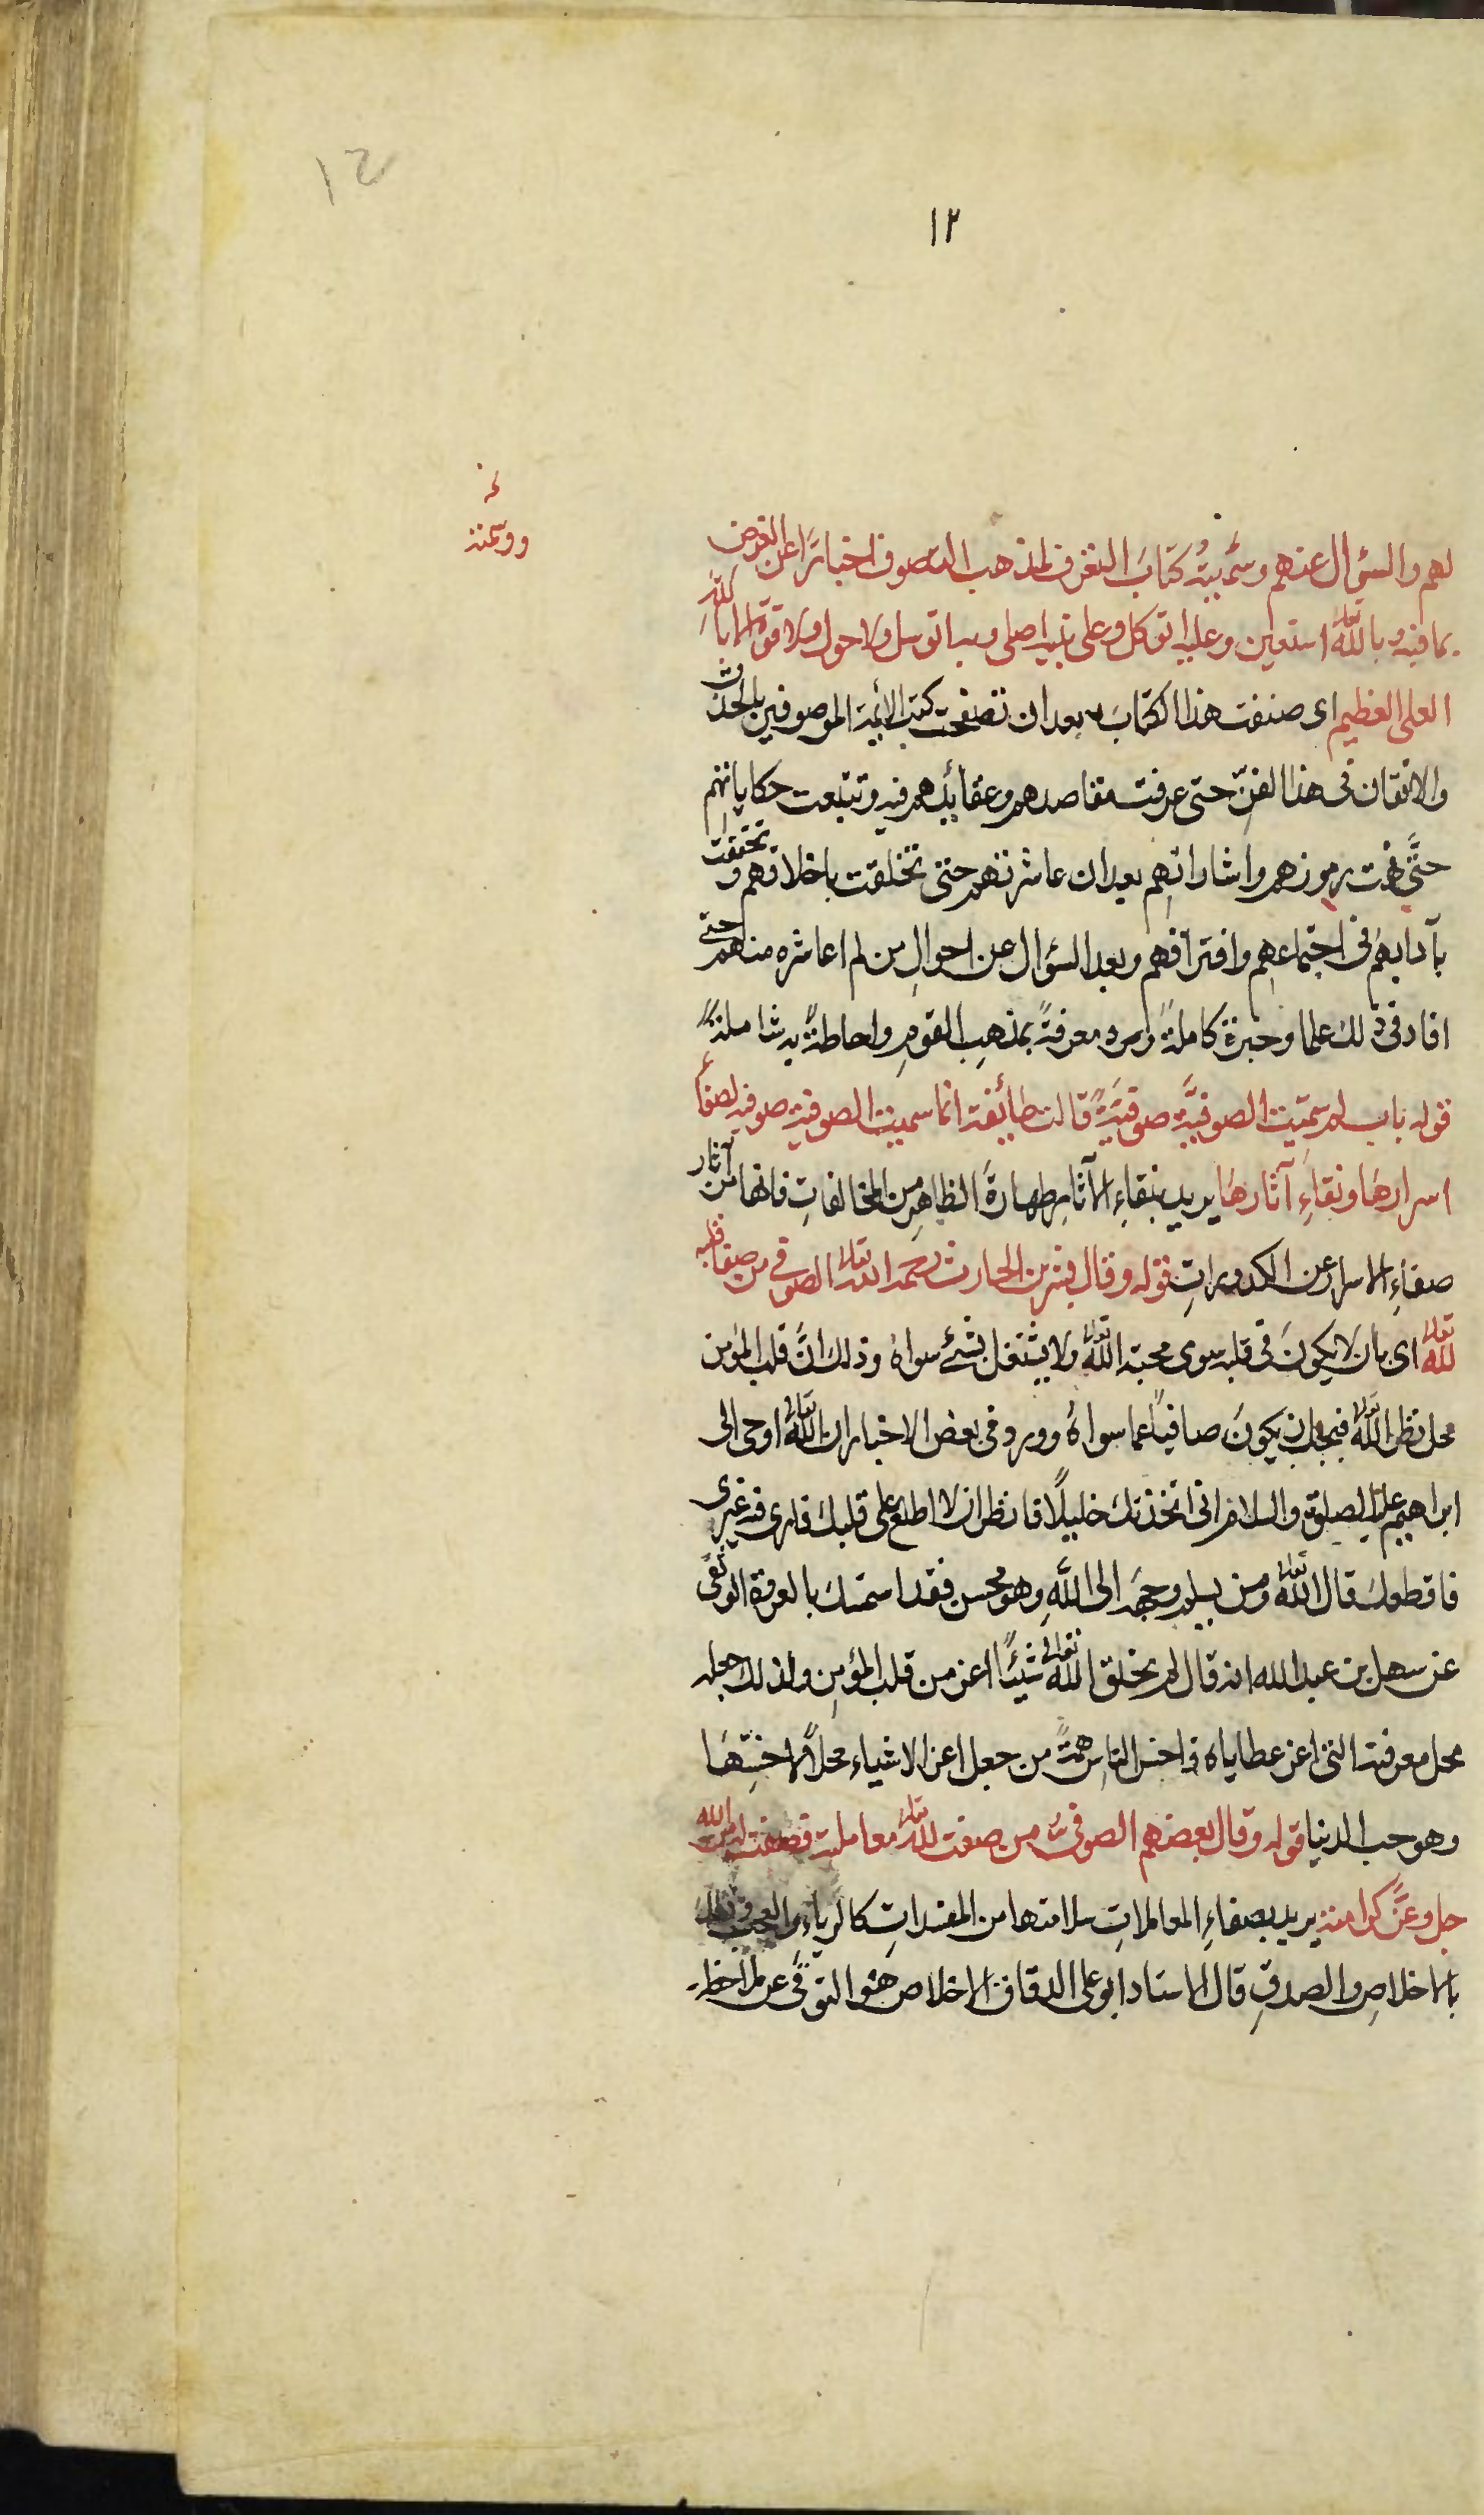 ١٢
١٢
لهم والسؤال عنهم وسميته كتاب التعرف لمذهب التصوف اخبارًا عن الغرض
بما فيه وبالله تعالى استعين وعليه اتوكل وعلى نبيه اصلى وبه اتوسل ولا حول ولا قوة الا بالله
العلى العظيم اى صنفت هذا الكتاب بعد ان تصفحت كتب الأئمة الموصوفين بالحذق
والاتقان فى هذا الفنّ حتى عرفت مقاصدهم وعقائدهم فيه وتتبعت حكاياتهم
حتَّى فهمت برموزهم واشاراتهم بعد ان عاشرتهم حتى تخلقت باخلاقهم وتحققت
بآدابهم فى اجتماعهم وافتراقهم وبعد السؤال عن احوالِ من لم اعاشره منهم حتى
افاد فى ذلك علما وخبرة كاملةً ومعرفةً بمذهبِ القومِ واحاطةً به شاملةً
قوله باب لم سميت الصوفيَّة صوفيَّةً قالت طائفة انما سميت الصوفية صوفية لصفاء
اسرارها ونقاءِ آثارها يريد بنقاءِ الآثارِ طهارةَ الظاهرِ من المخالفاتِ فانها من آثار
صفاءِ الاسرارِ عن الكدوراتِ قوله وقال بشر بن الحارث رحمه الله تعالى الصوفى من صفا قلبه
لله تعالى اى بان لا يكونَ فى قلبه سوى محبة الله تعالى ولا يشتغل بشئ سواه وذلك انَّ قلب المؤمن
محل نظر الله تعالى فيجب ان يكونَ صافيًا عما سواهُ وورد فى بعض الاخبار ان الله تعالى اوحى الى
ابراهيم عليه الصلوة والسلام انى اتخذتك خليلًا فانظر ان لا اطلع على قلبك فارى فيه غيرى
فاقطعك قال الله تعالى ومن يسلم وجهه الى اللَّهِ وهو محسن فقد استمسك بالعروة الوثقى
عن سهل بن عبد الله انه قال لم يخلق الله تعالى شيئًا اعز من قلب المؤمِنِ ولذلك جعله
محل معرفته التى اعز عطاياه فاخس الناسِ همّةً من جعل اعز الاشياء محلًا لاخسّها
وهو حب الدنيا قوله وقال بعضهم الصوفى من صفت لله تعالى معاملته فصفت له من الله
جل وعَّز كرامته يريد بصفاءِ المعاملاتِ سلامتها من المفسداتِ كالرياءِ والعجب وذلك
بالاخلاصِ والصدقِ قال الاستاد ابو على الدقاق الاخلاص هو التوقّى عن ملاحظة